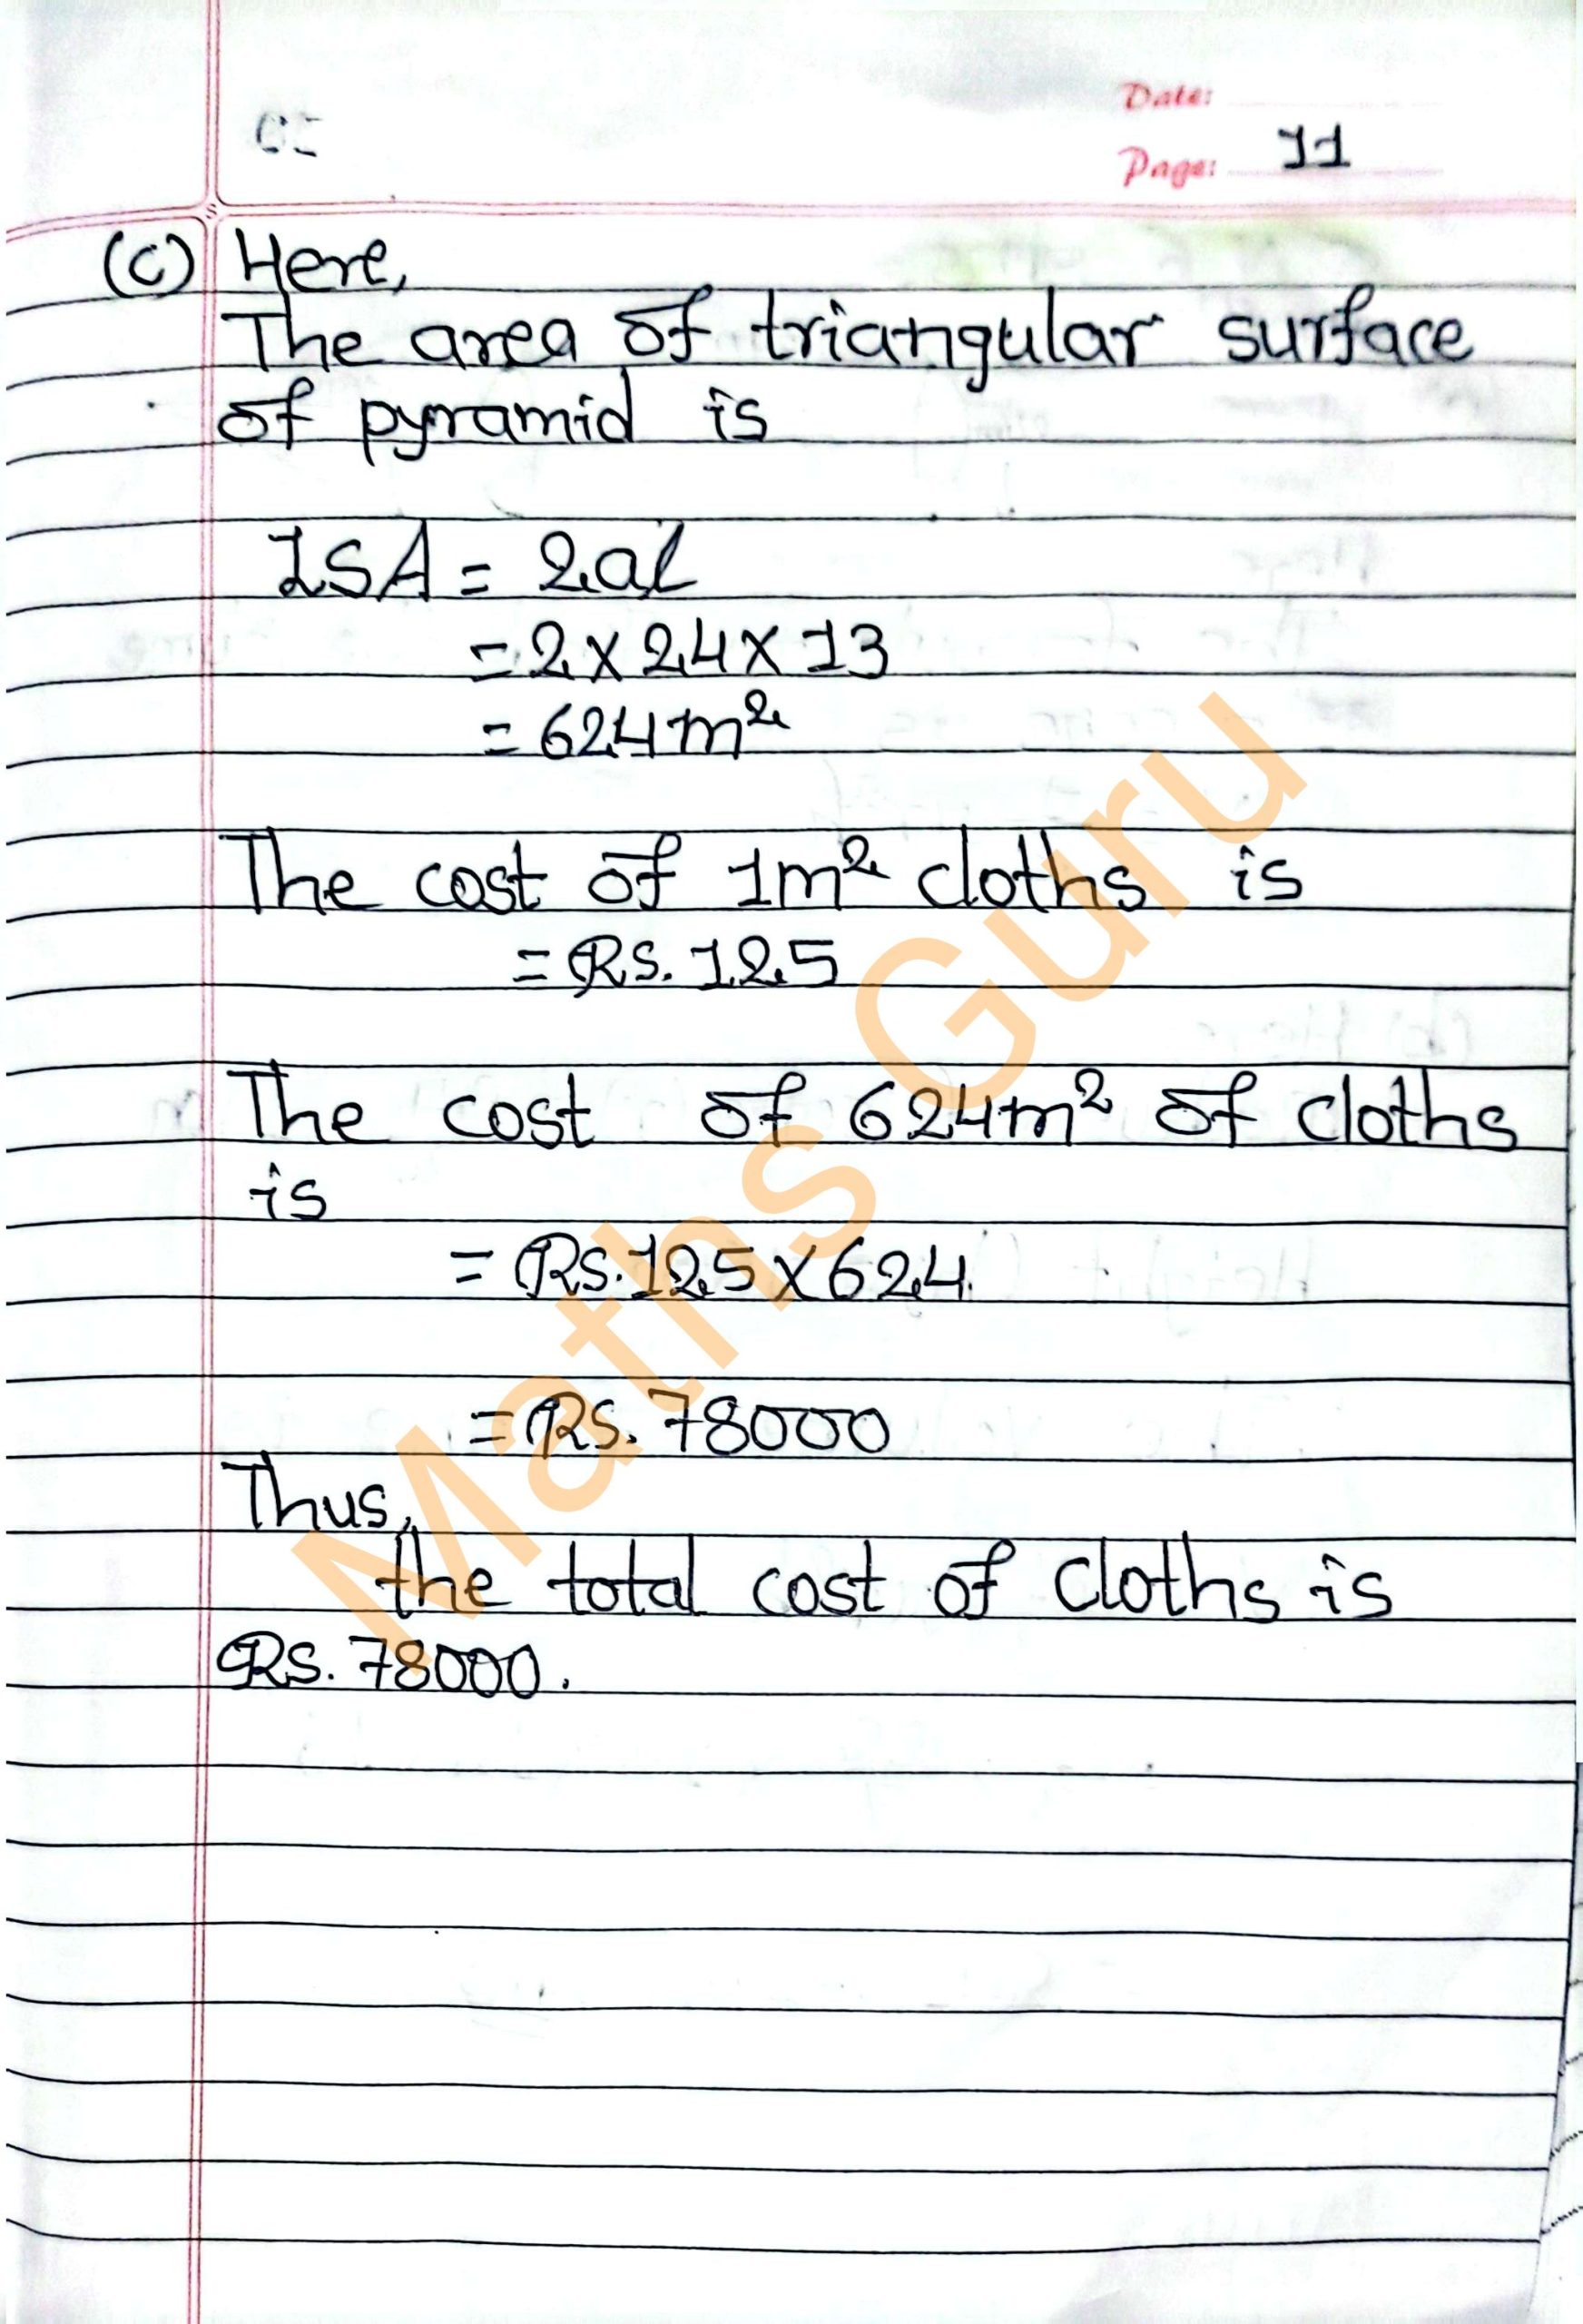 Date:
Page: 11
(c) Here,
The area of triangular surface
of pyramid is
LSA = 2al
= 2 × 24 × 13
= 624 m²
The cost of 1m² cloths is
= Rs. 125
The cost of 624m² of cloths
is
= Rs. 125 × 624
= Rs. 78000
Thus,
the total cost of cloths is
Rs. 78000.
Maths Guru